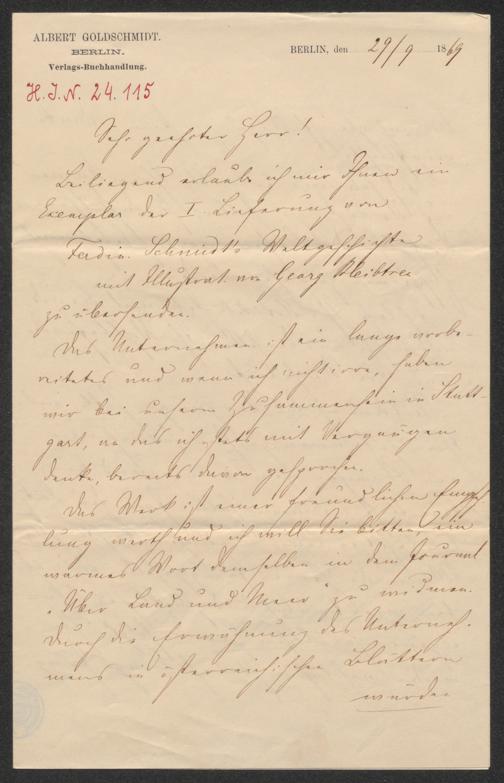 ALBERT GOLDSCHMIDT.
BERLIN.
Verlags-Buchhandlung.
BERLIN, den 29/9 1869
H. I. N. 24.115
Sehr geehrter Herr!
Beiliegend erlaube ich mir Ihnen ein
Exemplar der I Lieferung von
Ferdin. Schmidt's Weltgeschichte
mit Illustrat. von Georg Bleibtreu
zu übersenden.
Das Unternehmen ist ein lange vorbe-
reitetes und wenn ich nicht irre, haben
wir bei unserm Zusammensein in Stutt-
gart, an das ich stets mit Vergnügen
denke, bereits davon gesprochen.
Das Werk ist einer freundlichen Empfeh
lung werth und ich will Sie bitten, ein
warmes Wort demselben in dem Journal
"Über Land und Meer" zu widmen.
Durch die Erwähnung des Unterneh-
mens in österreichischen Blättern
würden